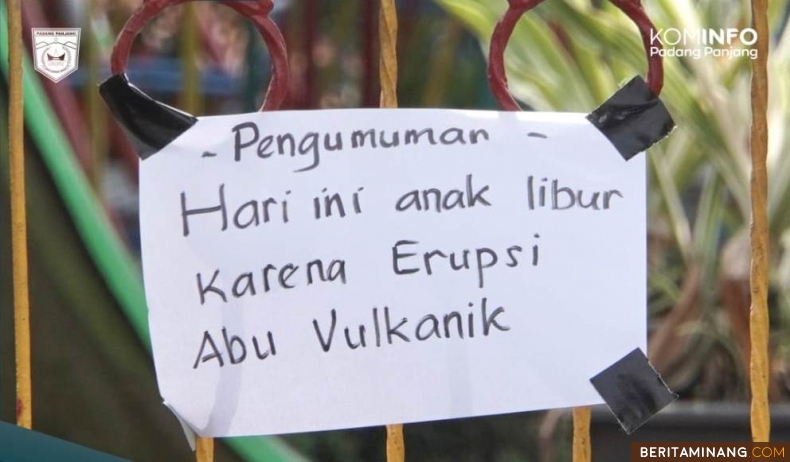 PADANG PANJANG
KOMINFO
Padang Panjang
- Pengumuman -
Hari ini anak libur
Karena Erupsi
Abu Vulkanik
BERITAMINANG.COM